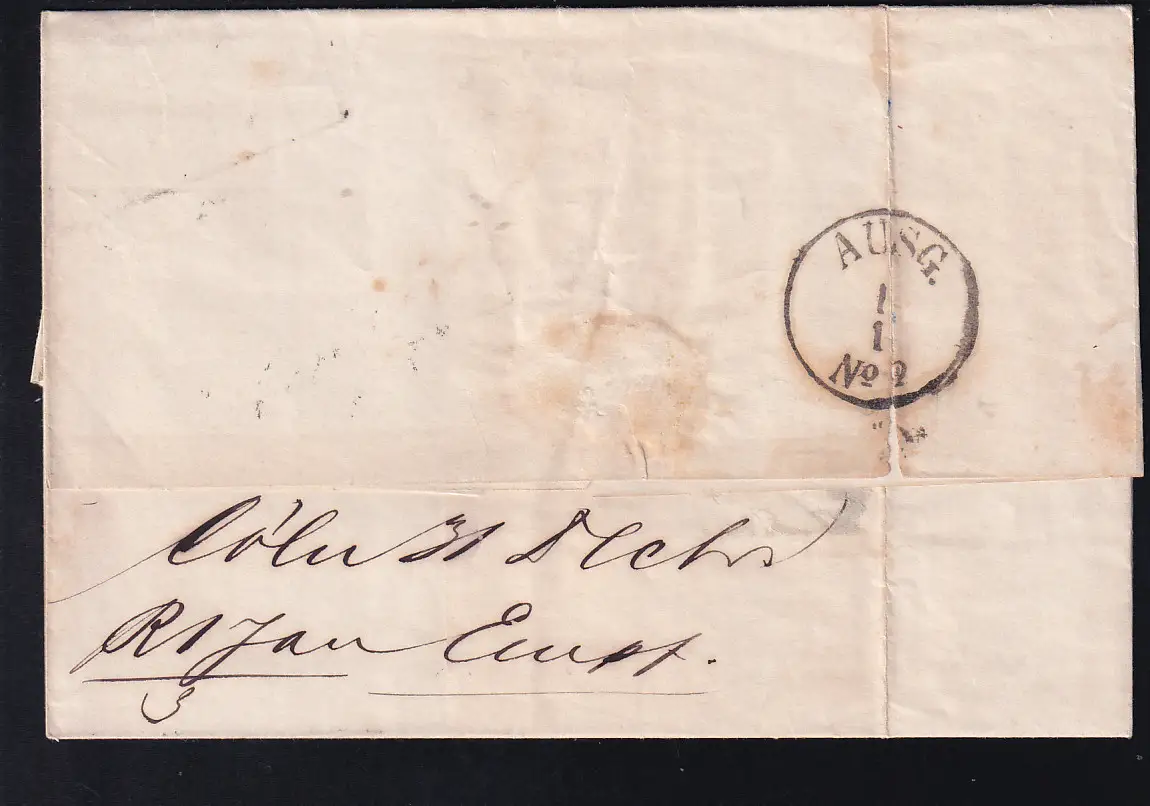 AUSG.
1
1
No 2
Cöln 31 Dcbr
R 1 Jan Ernst.